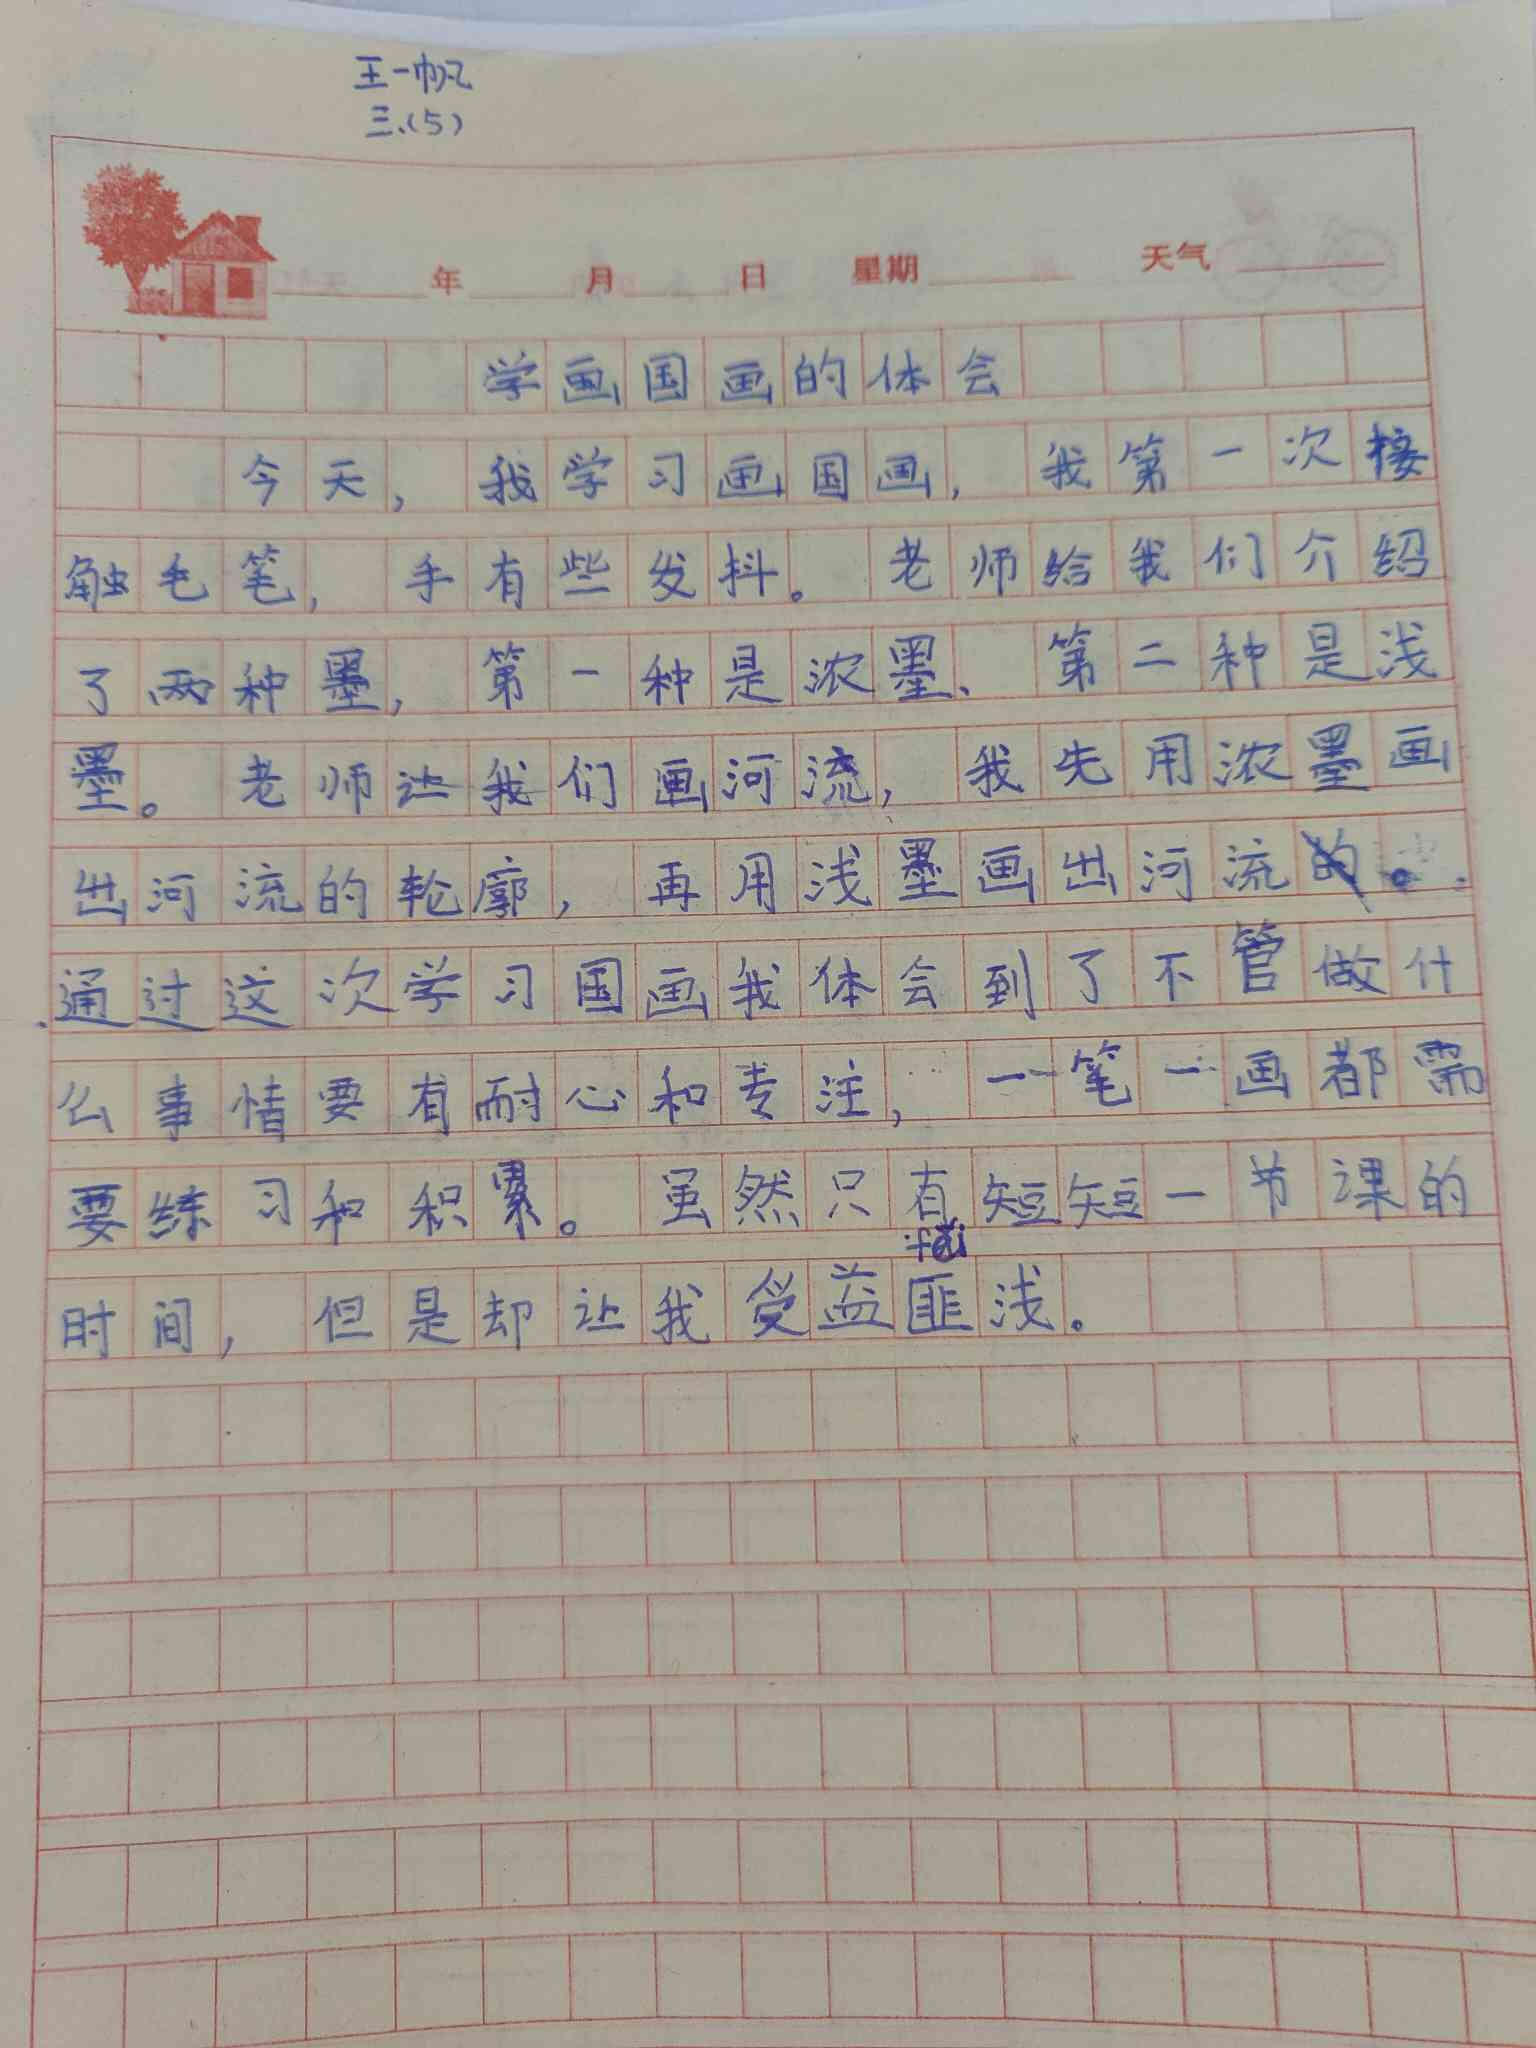 王一帆
三.(5)
年 月 日 星期 天气
学画国画的体会
今天，我学习画国画，我第一次接
触毛笔，手有些发抖。老师给我们介绍
了两种墨，第一种是浓墨、第二种是浅
墨。老师让我们画河流，我先用浓墨画
出河流的轮廓，再用浅墨画出河流。
通过这次学习国画我体会到了不管做什
么事情要有耐心和专注，一笔一画都需
要练习和积累。虽然只有短短一节课的
fěi
时间，但是却让我受益匪浅。